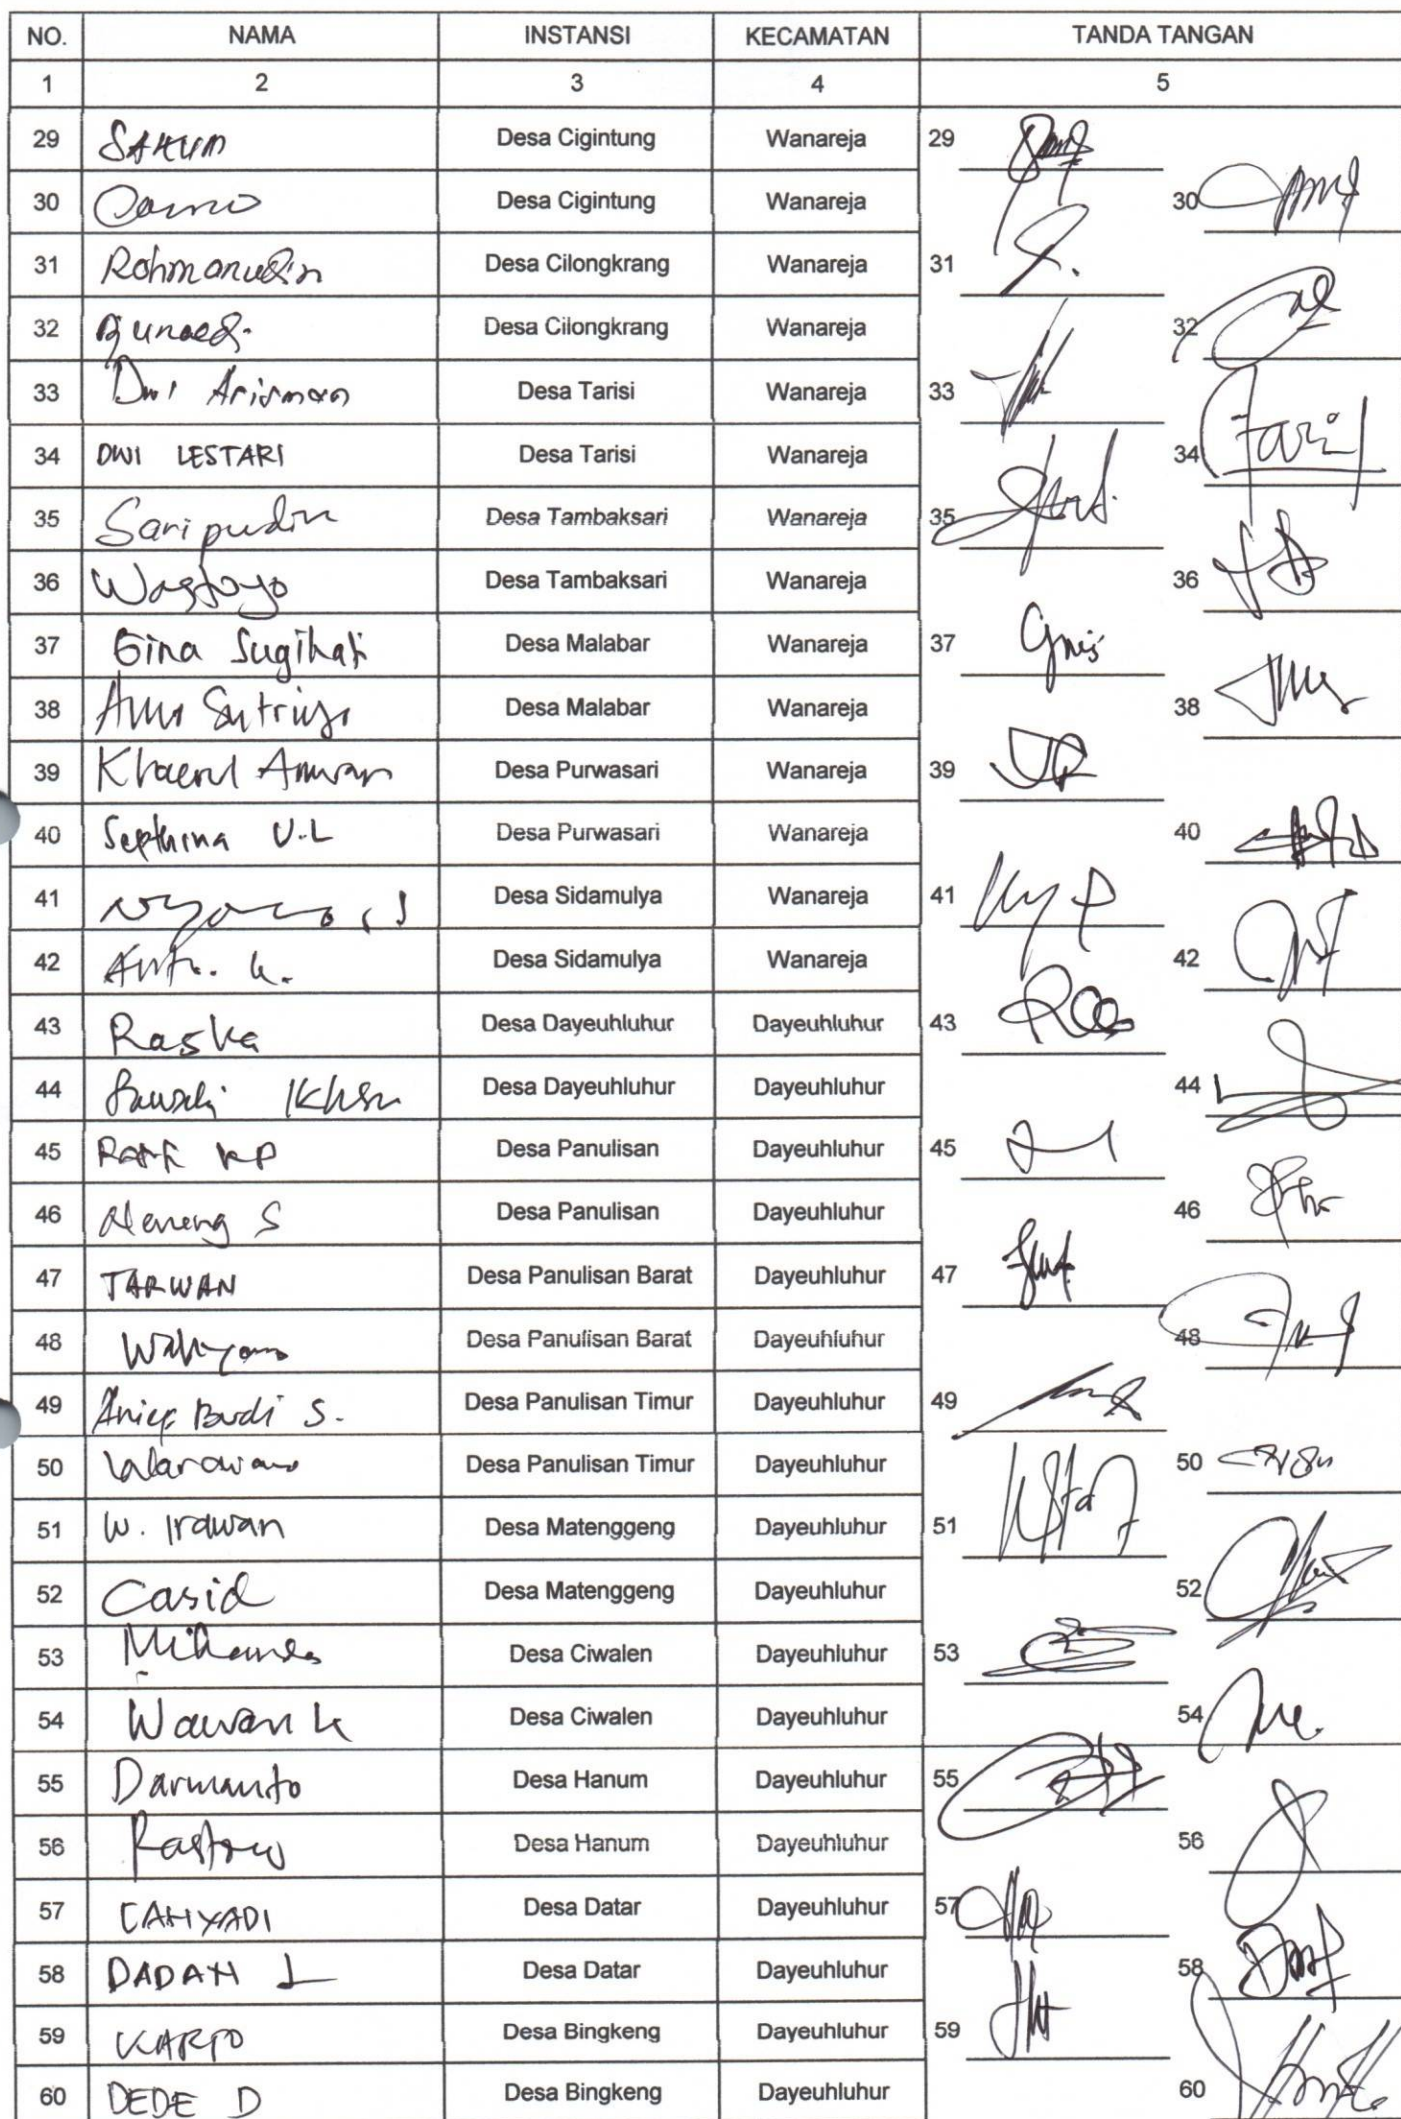 NO. NAMA INSTANSI KECAMATAN TANDA TANGAN
1 2 3 4 5
29 SAKUM Desa Cigintung Wanareja 29
30 Desa Cigintung Wanareja 30
31 Rohmanudin Desa Cilongkrang Wanareja 31
32 Djunaedi Desa Cilongkrang Wanareja 32
33 Dwi Arisman Desa Tarisi Wanareja 33
34 DWI LESTARI Desa Tarisi Wanareja 34
35 Saripudin Desa Tambaksari Wanareja 35
36 Wastoyo Desa Tambaksari Wanareja 36
37 Gina Sugihati Desa Malabar Wanareja 37
38 Sutrisno Desa Malabar Wanareja 38
39 Khaerul Anwar Desa Purwasari Wanareja 39
40 Septhina U.L Desa Purwasari Wanareja 40
41 Desa Sidamulya Wanareja 41
42 Desa Sidamulya Wanareja 42
43 Raska Desa Dayeuhluhur Dayeuhluhur 43
44 Desa Dayeuhluhur Dayeuhluhur 44
45 Desa Panulisan Dayeuhluhur 45
46 Neneng S Desa Panulisan Dayeuhluhur 46
47 TARWAN Desa Panulisan Barat Dayeuhluhur 47
48 Wahyono Desa Panulisan Barat Dayeuhluhur 48
49 Budi S. Desa Panulisan Timur Dayeuhluhur 49
50 Desa Panulisan Timur Dayeuhluhur 50
51 W. Irawan Desa Matenggeng Dayeuhluhur 51
52 Casid Desa Matenggeng Dayeuhluhur 52
53 Desa Ciwalen Dayeuhluhur 53
54 Wawan K Desa Ciwalen Dayeuhluhur 54
55 Darmanto Desa Hanum Dayeuhluhur 55
56 Desa Hanum Dayeuhluhur 56
57 CAHYADI Desa Datar Dayeuhluhur 57
58 DADAH L Desa Datar Dayeuhluhur 58
59 KARTO Desa Bingkeng Dayeuhluhur 59
60 DEDE D Desa Bingkeng Dayeuhluhur 60